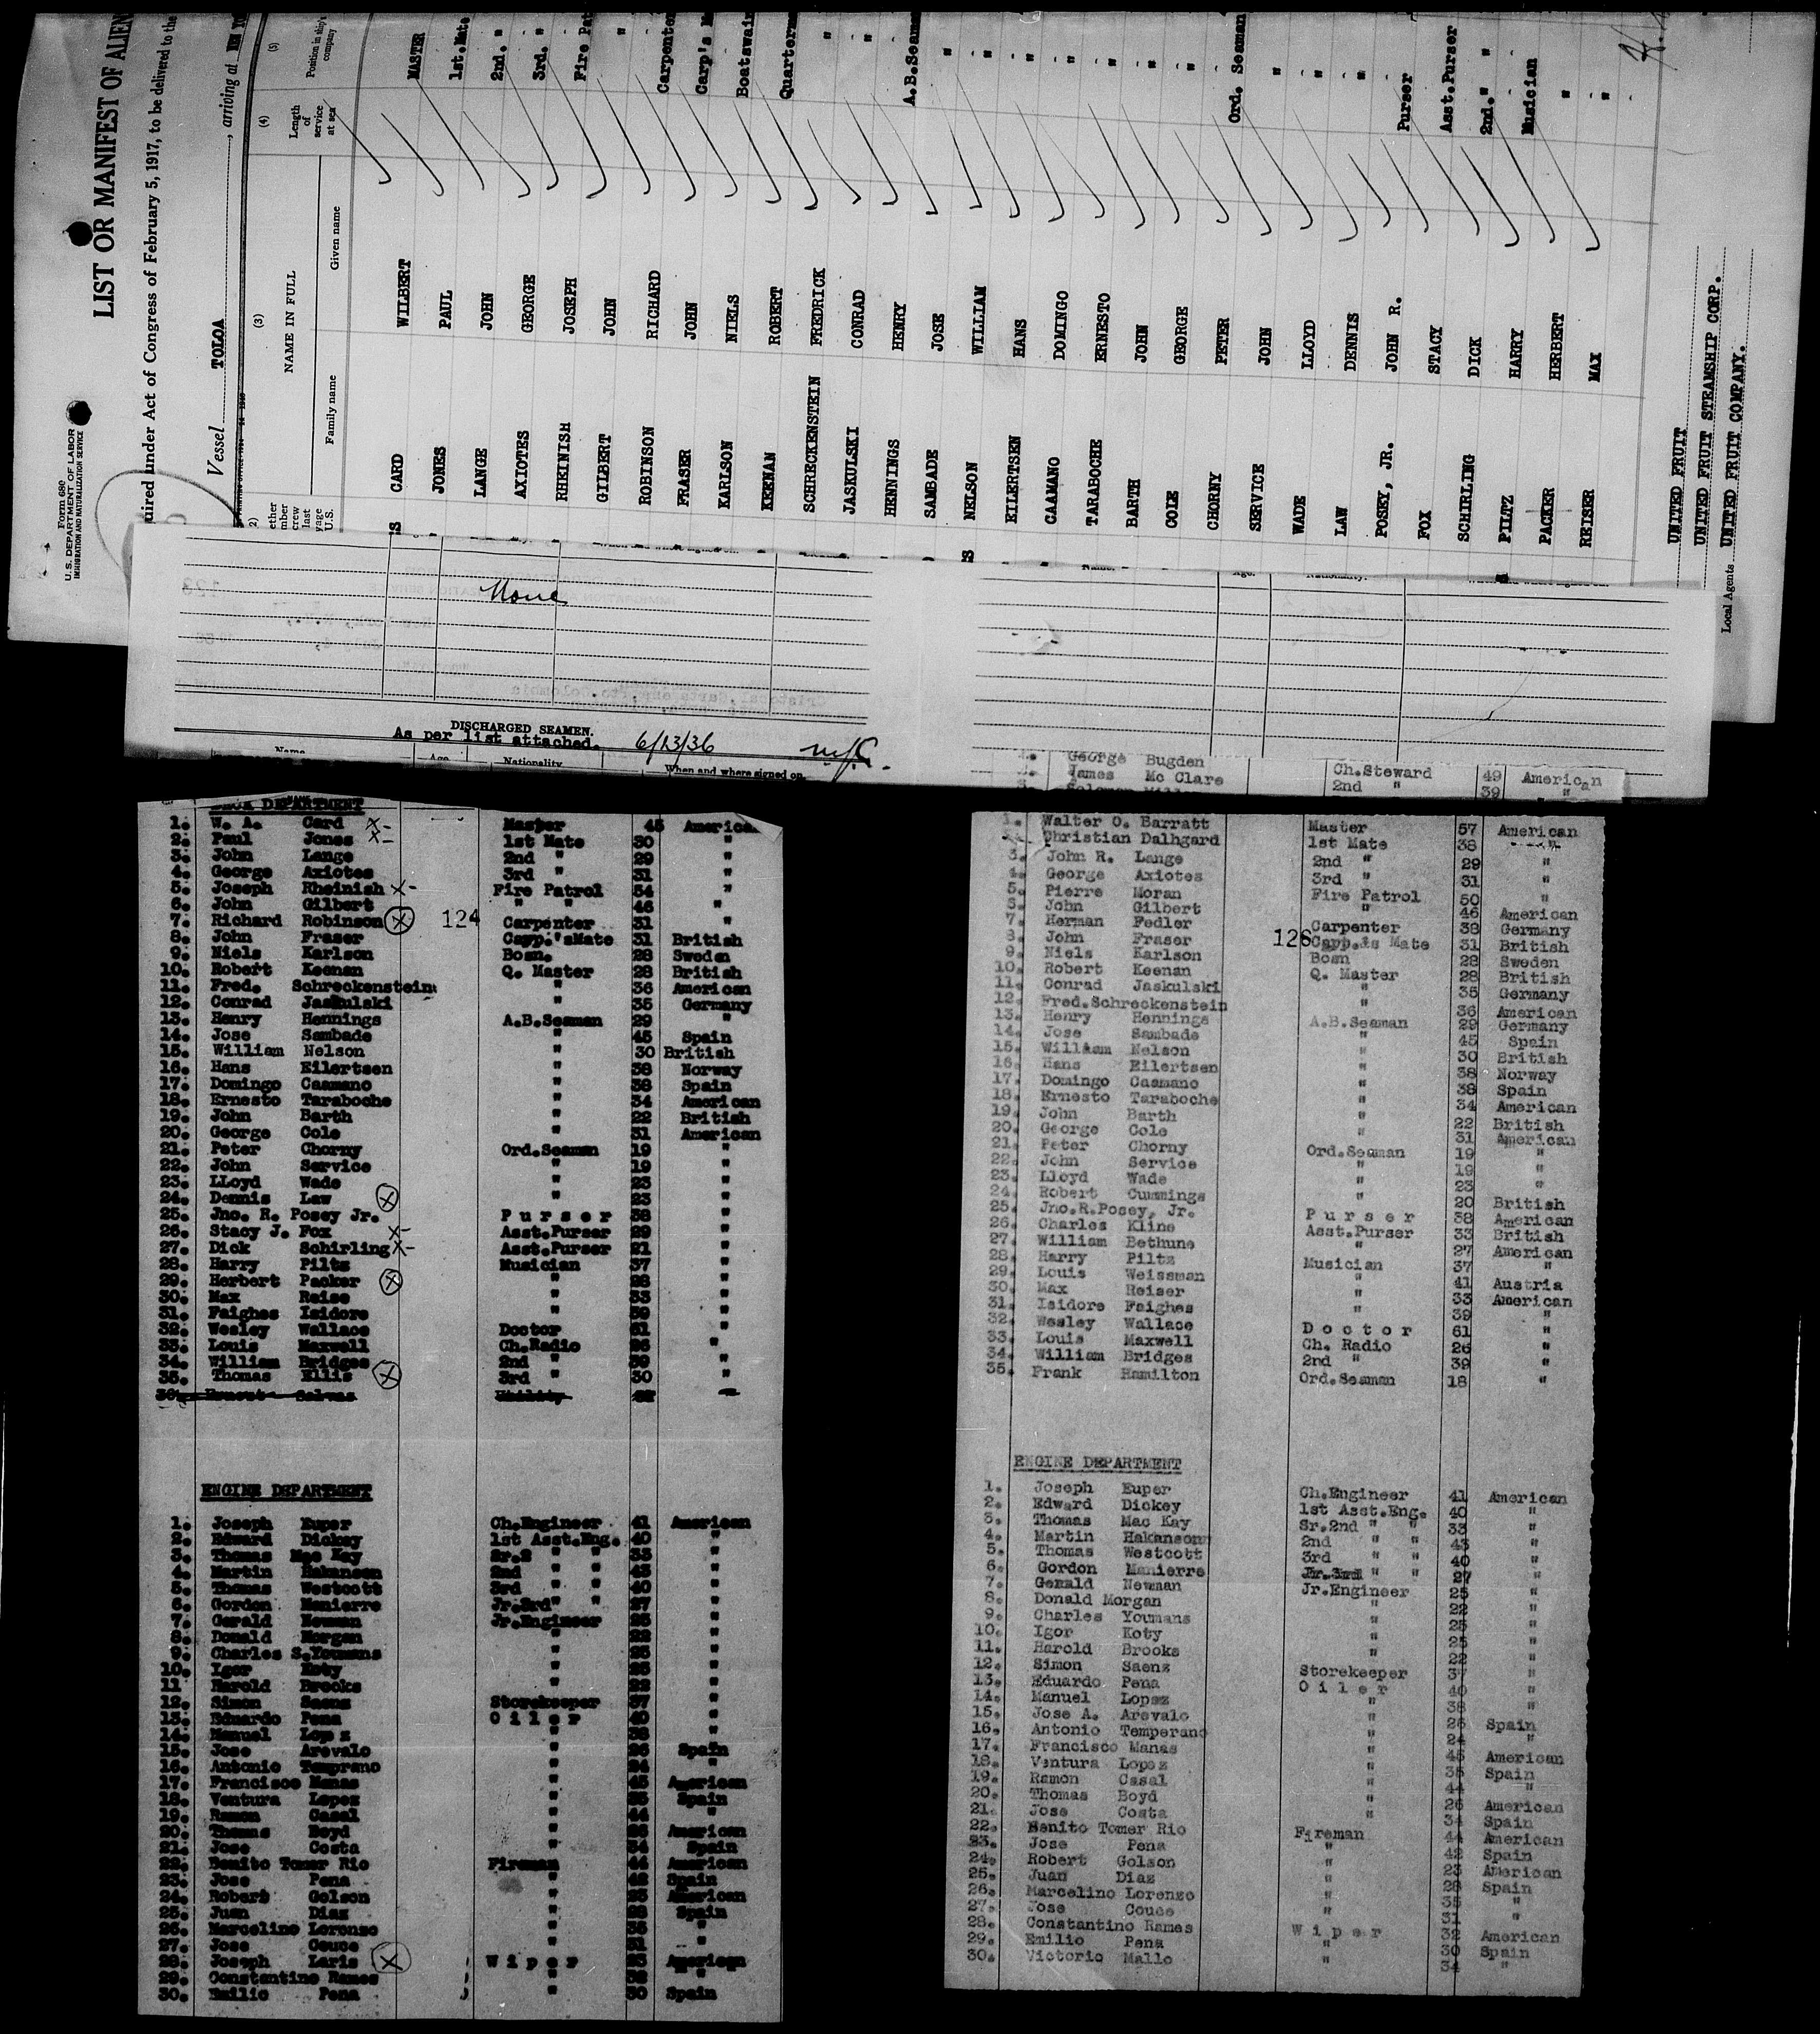 Form 680
U. S. DEPARTMENT OF LABOR
IMMIGRATION AND NATURALIZATION SERVICE
LIST OR MANIFEST OF ALIEN
uired under Act of Congress of February 5, 1917, to be delivered to the
Vessel TOLOA, arriving at
(3) (4) (5)
NAME IN FULL
Family name Given name
Length of service at sea
Position in ship's company
CARD WILBERT MASTER
JONES PAUL 1st.Mate
LANGE JOHN 2nd. "
AXIOTES GEORGE 3rd. "
RHEINISH JOSEPH Fire Pat
GILBERT JOHN "
ROBINSON RICHARD Carpenter
FRASER JOHN Carp's M
KARLSON NIELS Boatswain
KEENAN ROBERT Quarterm
SCHRECKENSTEIN FREDRICK "
JASKULSKI CONRAD "
HENNINGS HENRY A.B.Seam
SAMBADE JOSE "
NELSON WILLIAM "
EILERTSEN HANS "
CAAMANO DOMINGO "
TARABOCHE ERNESTO "
BARTH JOHN "
COLE GEORGE "
CHORNY PETER Ord. Seaman
SERVICE JOHN "
WADE LLOYD "
LAW DENNIS "
POSEY, JR. JOHN R. Purser
FOX STACY Asst.Purser
SCHIRLING DICK 2nd." "
PILTZ HARRY Musician
PACKER HERBERT "
REISER MAX "
UNITED FRUIT
UNITED FRUIT STEAMSHIP CORP.
Local Agents UNITED FRUIT COMPANY.
None
DISCHARGED SEAMEN.
As per list attached. 6/13/36
Name Age Nationality When and where signed on.
1. George Bugden Ch.Steward 49 American
2. James Mc Clare 2nd " 39 "
DECK DEPARTMENT
1. W. A. Card X- Master 45 American
2. Paul Jones X- 1st Mate 30 "
3. John Lange 2nd " 29 "
4. George Axiotes 3rd " 31 "
5. Joseph Rheinish X- Fire Patrol 54 "
6. John Gilbert " " 46 "
7. Richard Robinson X 124 Carpenter 31 "
8. John Fraser Capp.'sMate 31 British
9. Niels Karlson Bosn. 28 Sweden
10. Robert Keenan Q. Master 28 British
11. Fred. Schreckenstein " 36 American
12. Conrad Jaskulski " 35 Germany
13. Henry Hennings A.B.Seaman 29 "
14. Jose Sambade " 45 Spain
15. William Nelson " 30 British
16. Hans Eilertsen " 38 Norway
17. Domingo Caamano " 38 Spain
18. Ernesto Taraboche " 34 American
19. John Barth " 22 British
20. George Cole " 31 American
21. Peter Chorny Ord.Seaman 19 "
22. John Service " 19 "
23. LLoyd Wade " 23 "
24. Dennis Law X " 23 "
25. Jno. R. Posey Jr. Purser 38 "
26. Stacy J. Fox X- Asst.Purser 29 "
27. Dick Schirling X- Asst.Purser 21 "
28. Harry Piltz Musician 37 "
29. Herbert Packer X " 28 "
30. Max Reise " 33 "
31. Faighes Isidore " 39 "
32. Wesley Wallace Doctor 61 "
33. Louis Maxwell Ch.Radio 26 "
34. William Bridges 2nd " 39 "
35. Thomas Ellis X 3rd " 30 "
ENGINE DEPARTMENT
1. Joseph Euper Ch.Engineer 41 American
2. Edward Dickey 1st Asst.Eng. 40 "
3. Thomas Mac Kay Sr.2 " " 33 "
4. Martin Hakanson 2nd " " 43 "
5. Thomas Westcott 3rd " " 40 "
6. Gordon Manierre Jr.3rd" " 27 "
7. Gerald Newman Jr.Engineer 25 "
8. Donald Morgan " 22 "
9. Charles S.Youmans " 25 "
10. Igor Koty " 25 "
11 Harold Brooks " 22 "
12. Simon Saenz Storekeeper 37 "
13. Eduardo Pena Oiler 40 "
14. Manuel Lop z " 38 "
15. Jose Arevalo " 26 Spain
16. Antonio Temprano " 24 "
17. Francisco Manas " 45 American
18. Ventura Lopez " 35 Spain
19. Ramon Casal " 44 "
20. Thomas Boyd " 26 American
21. Jose Costa " 34 Spain
22. Benito Tomer Rio Fireman 44 American
23. Jose Pena " 42 Spain
24. Robert Golson " 23 American
25. Juan Diaz " 28 Spain
26. Marcelino Lorenzo " 35 "
27. Jose Couce " 31 "
28. Joseph Laris X Wiper 23 American
29. Constantino Rames " 32 "
30. Emilio Pena " 30 Spain
1. Walter O. Barratt Master 57 American
Christian Dalhgard 1st Mate 38 "
3. John R. Lange 2nd " 29 "
4. George Axiotes 3rd " 31 "
5. Pierre Moran Fire Patrol 50 "
5. John Gilbert " 46 American
7. Herman Fedler Carpenter 38 Germany
8. John Fraser 126 Capp.'s Mate 31 British
9. Niels Karlson Bosn 28 Sweden
10. Robert Keenan Q. Master 28 British
11. Conrad Jaskulski " 35 Germany
12. Fred.Schreckenstein " 36 American
13. Henry Hennings A.B.Seaman 29 Germany
14. Jose Sambade " 45 Spain
15. William Nelson " 30 British
16. Hans Eilertsen " 38 Norway
17. Domingo Caamano " 38 Spain
18. Ernesto Taraboche " 34 American
19. John Barth " 22 British
20. George Cole " 31 American
21. Peter Chorny Ord.Seaman 19 "
22. John Service " 19 "
23. Lloyd Wade " 23 "
24. Robert Cummings " 20 British
25. Jno.R.Posey, Jr. Purser 38 American
26. Charles Kline Asst.Purser 33 British
27. William Bethune " 27 American
28. Harry Piltz Musician 37 "
29. Louis Weissman " 41 Austria
30. Max Reiser " 33 American
31. Isidore Faighes " 39 "
32. Wesley Wallace Doctor 61 "
33. Louis Maxwell Ch. Radio 26 "
34. William Bridges 2nd " 39 "
35. Frank Hamilton Ord.Seaman 18 "
ENGINE DEPARTMENT
1. Joseph Euper Ch.Engineer 41 American
2. Edward Dickey 1st Asst.Eng. 40 "
3. Thomas Mac Kay Sr.2nd " " 33 "
4. Martin Hakanson 2nd " " 43 "
5. Thomas Westcott 3rd " " 40 "
6. Gordon Manierre Jr.3rd " " 27 "
7. Gerald Newman Jr.Engineer 25 "
8. Donald Morgan " 22 "
9. Charles Youmans " 25 "
10. Igor Koty " 25 "
11. Harold Brooks " 22 "
12. Simon Saenz Storekeeper 37 "
13. Eduardo Pena Oiler 40 "
14. Manuel Lopez " 38 "
15. Jose A. Arevalo " 26 Spain
16. Antonio Temperano " 24 "
17. Francisco Manas " 45 American
18. Ventura Lopez " 35 Spain
19. Ramon Casal " 44 "
20. Thomas Boyd " 26 American
21. Jose Costa " 34 Spain
22. Benito Tomer Rio Fireman 44 American
23. Jose Pena " 42 Spain
24. Robert Golson " 23 American
25. Juan Diaz " 28 Spain
26. Marcelino Lorenzo " 35 "
27. Jose Couce " 31 "
28. Constantino Rames Wiper 32 American
29. Emilio Pena " 30 Spain
30. Victorio Mallo " 34 "